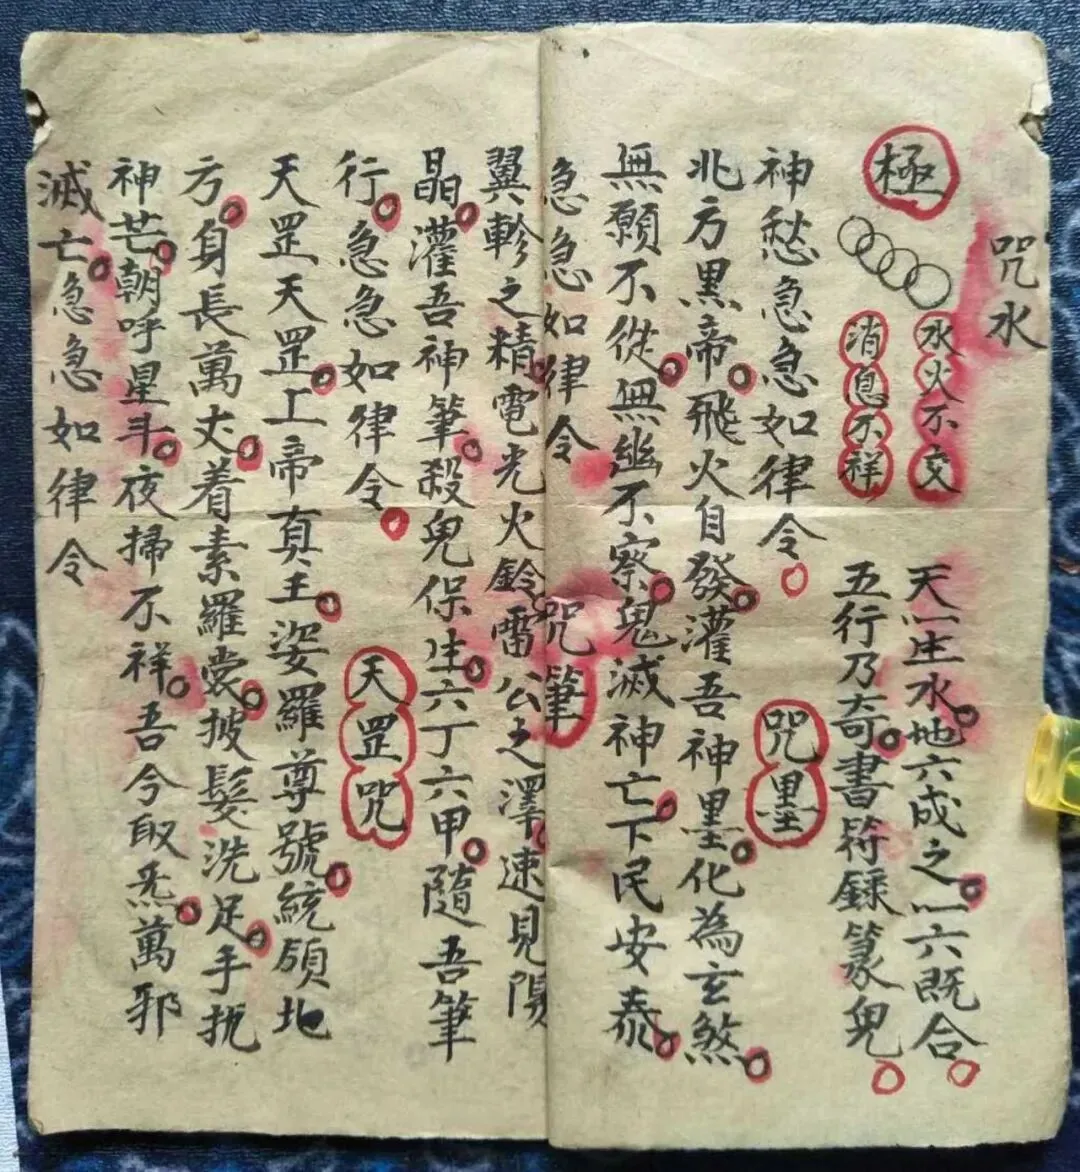 咒水
水火不交
天一生水地六成之一六既合
極
消息不祥
五行乃奇書符錄篆鬼
神愁急急如律令
咒墨
北方黑帝飛火自發灌吾神墨化為玄煞
無願不從無幽不察鬼滅神亡下民安泰
急急如律令
咒筆
翼軫之精電光火鈴雷公之澤速見陽
晶灌吾神筆殺鬼保生六丁六甲隨吾筆
行急急如律令
天罡咒
天罡天罡上帝真主姿羅尊號統領北
方身長萬丈着素羅裳披髮洗足手執
神芒朝呼星斗夜掃不祥吾今取炁萬邪
滅亡急急如律令